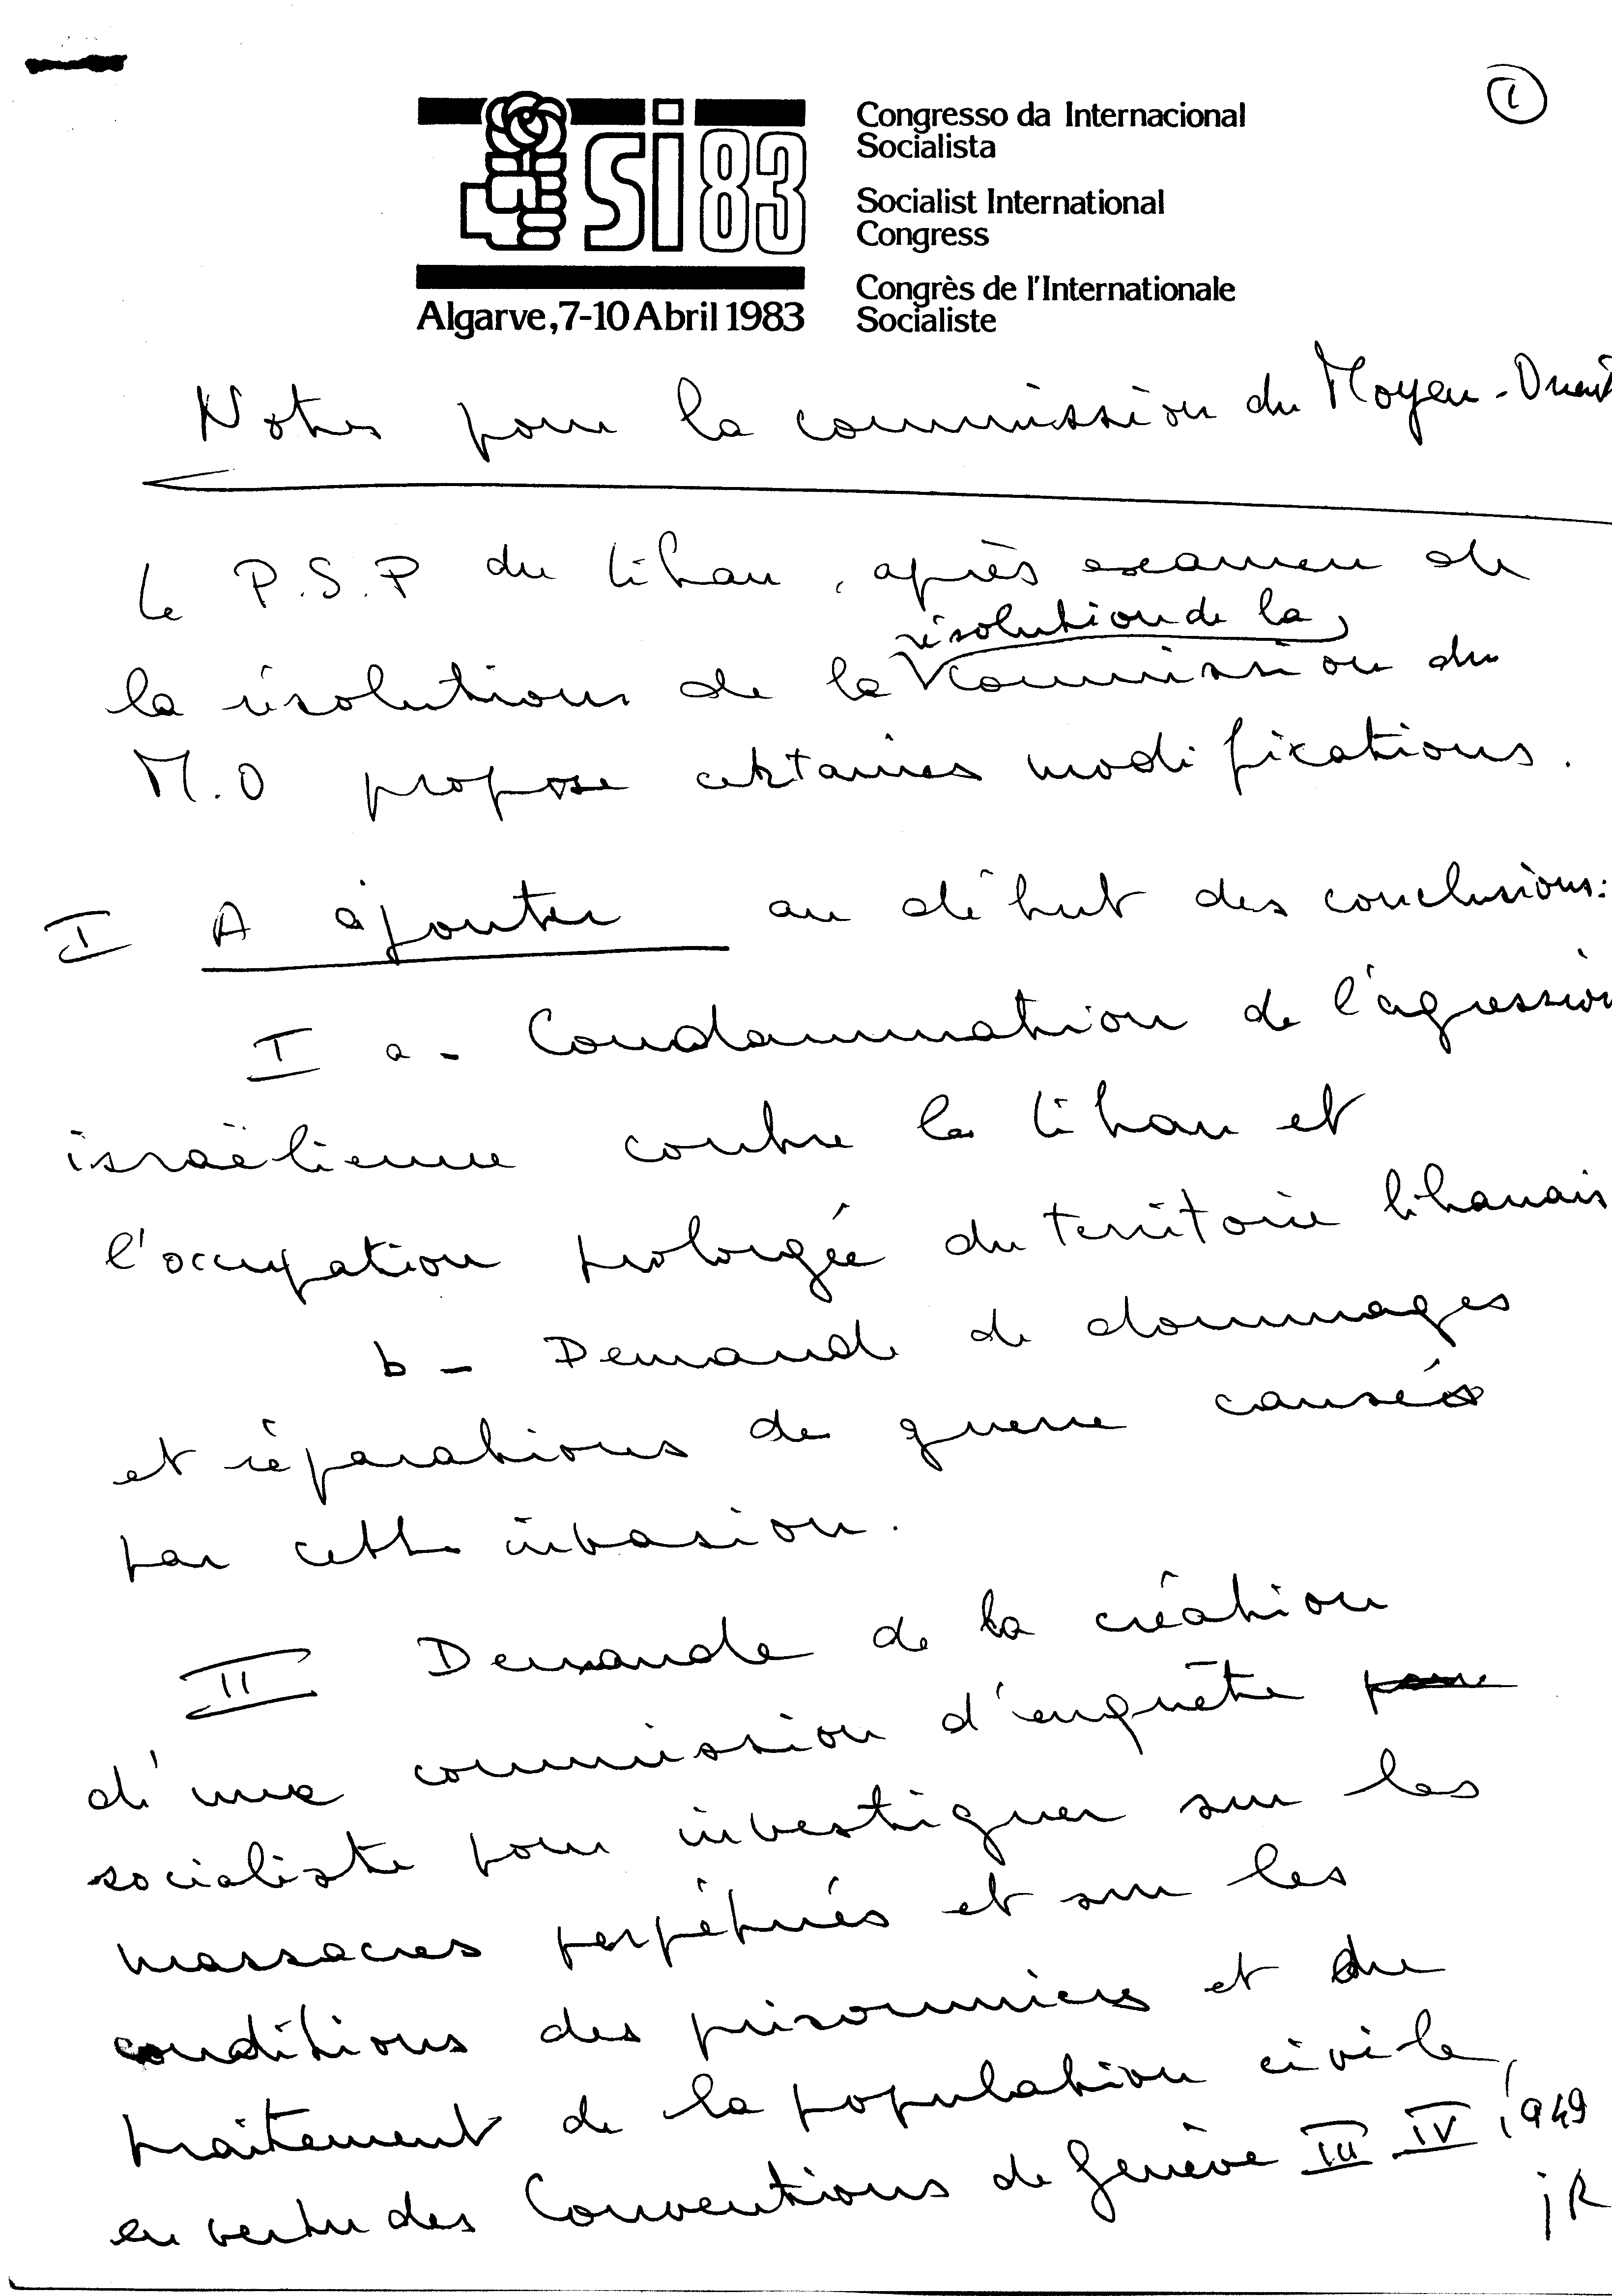 1
si 83
Algarve, 7-10 Abril 1983
Congresso da Internacional
Socialista
Socialist International
Congress
Congrès de l'Internationale
Socialiste
Notes pour la commission du Moyen-Orient
Le P.S.P du Liban, après examen de
résolution de la
la résolutions de la commission du
M.O propose certaines modifications.
I A ajouter au début des conclusions:
I a - Condamnation de l'agression
israëlienne contre le Liban et
l'occupation prolongée du territoire libanais
b - Demande de dommages
et réparations de guerre causés
par cette invasion.
II Demande de la création
d'une commission d'enquête pour
socialiste pour investiguer sur les
massacres perpétués et sur les
conditions des prisonniers et du
traitement de la population civile,
en vertu des Conventions de Genève III IV 1949
jR